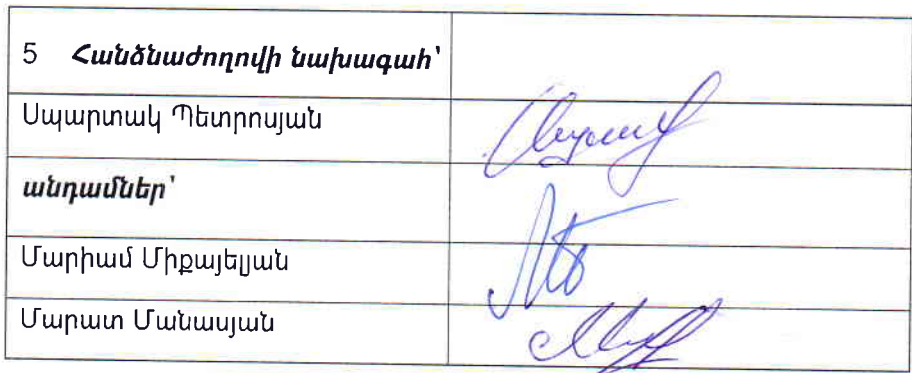 5 Հանձնաժողովի նախագահ՝
Սպարտակ Պետրոսյան
անդամներ՝
Մարիամ Միքայելյան
Մարատ Մանասյան